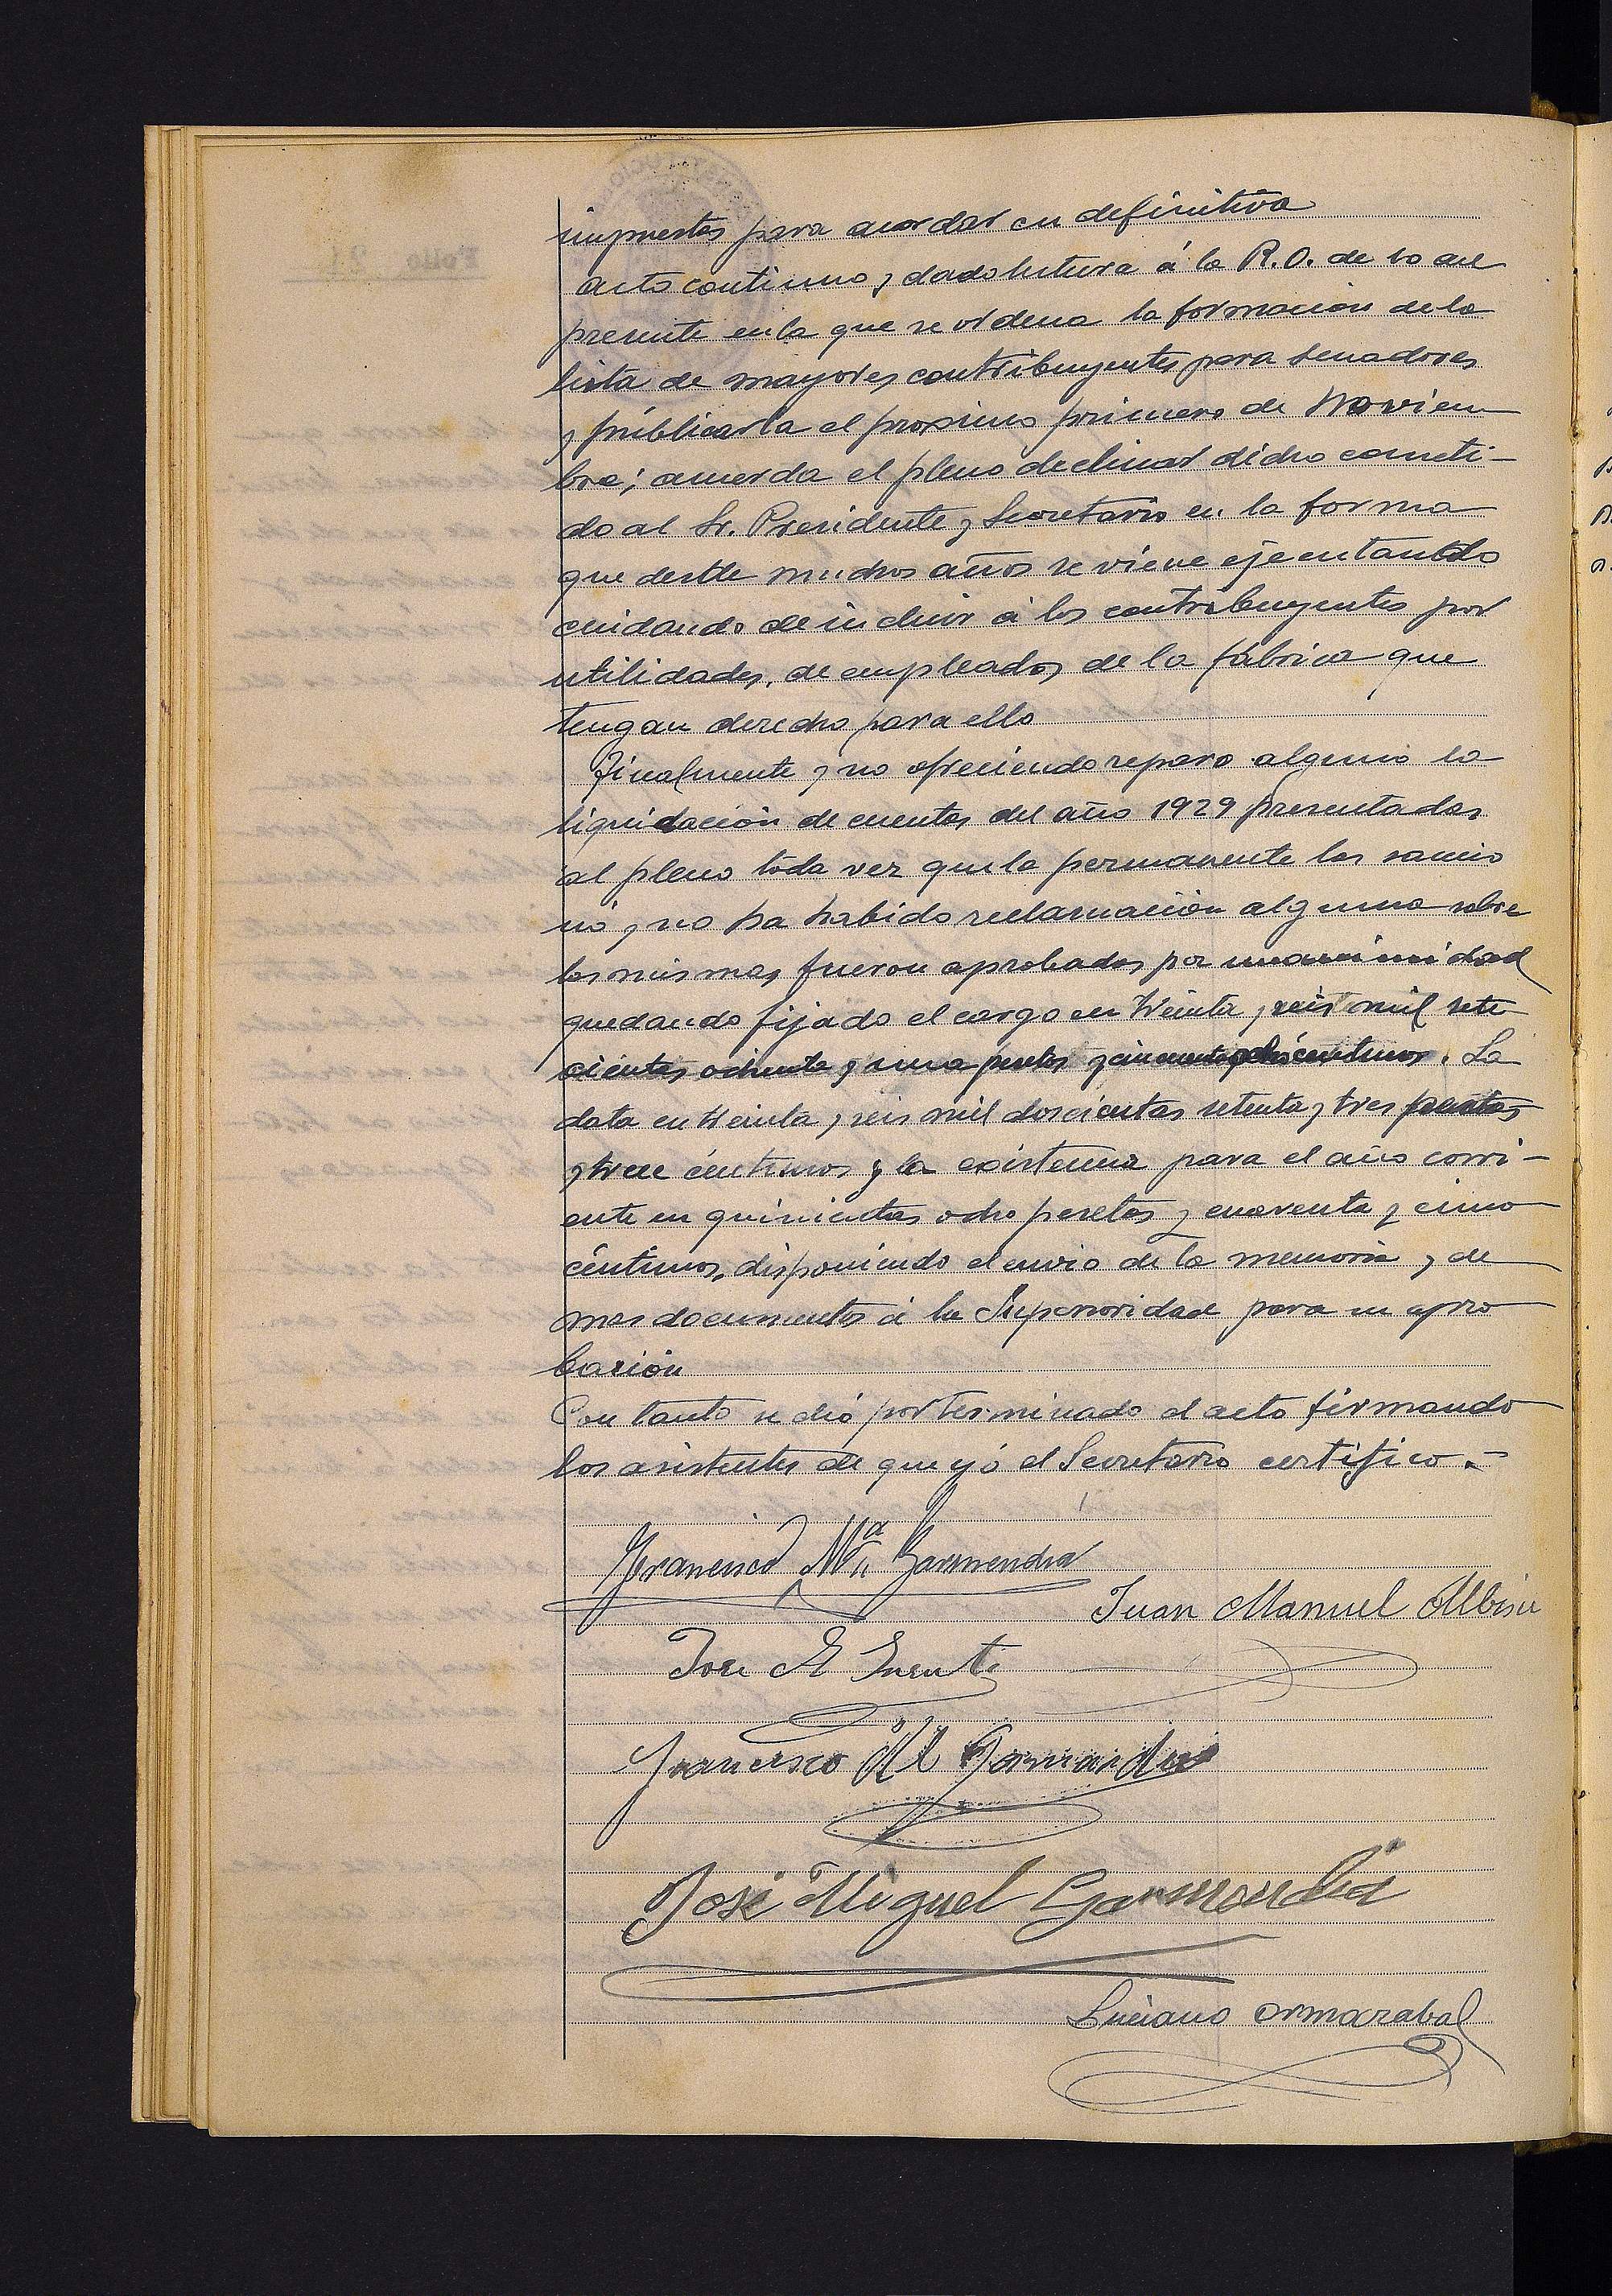 impuestos para acordar en definitiva
Acto continuo, y dado lectura á la R.O. de 10 del
presente en la que se ordena la formación de la
lista de mayores contribuyentes para senadores
y públicarla el proximo primero de Noviem
bre; acuerda el pleno declinar dicho cometi-
do al Sr. Presidente y Secretario en la forma
que desde muchos años se viene ejecutando
cuidando de incluir á los contribuyentes por
utilidades, de empleados de la fábrica que
tengan derecho para ello
Finalmente y no ofreciendo reparo alguno la
liquidación de cuentas del año 1929 presentadas
al pleno toda vez que la permanente las sancio
nó y no ha habido reclamación alguna sobre
las mismas, fueron aprobadas por unanimidad
quedando fijado el cargo en treinta y seis mil sete
cientas ochenta y una pesetas y cincuenta y ocho céntimos. La
data en treinta y seis mil doscientas setenta y tres pesetas
y trece céntimos y la existencia para el año corri-
ente en quinientas ocho pesetas y cuarenta y cinco
céntimos, disponiendo el envio de la memoria y de
mas documentos á la Superioridad para su apro
bación
Con tanto se dió por terminado el acto firmando
los asistentes de que yó el Secretario certifico.=
Francisco Mª Garmendia
Juan Manuel Albisu
Jose
Francisco Garmendia
José Miguel Garmendia
Luciano Ormazabal